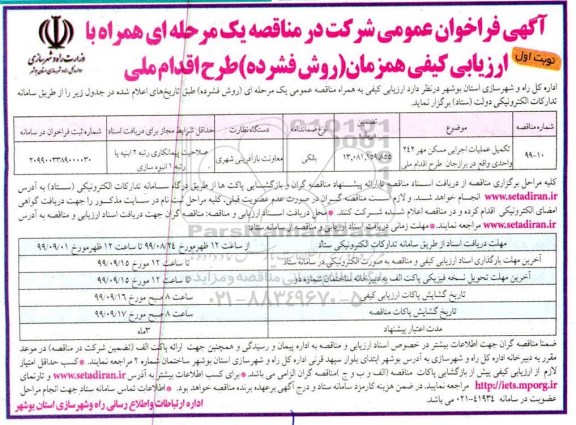 آگهی فراخوان عمومی شرکت در مناقصه یک مرحله ای همراه با
ارزیابی کیفی همزمان (روش فشرده) طرح اقدام ملی
نوبت اول
وزارت راه و شهرسازی
اداره کل راه و شهرسازی استان بوشهر درنظر دارد ارزیابی کیفی به همراه مناقصه عمومی یک مرحله ای (روش فشرده) طبق تاریخ‌های اعلام شده در جدول زیر را از طریق سامانه
تدارکات الکترونیکی دولت (ستاد) برگزار نماید.
شماره مناقصه موضوع تضمین نوع ضمانتنامه دستگاه نظارت حداقل شرایط مجاز برای دریافت اسناد شماره ثبت فراخوان در سامانه
۹۹-۱۰ تکمیل عملیات اجرایی مسکن مهر ۲۴۲ واحدی واقع در برازجان طرح اقدام ملی ۱۳,۰۸۱,۹۵۹,۸۵۵ بانکی معاونت بازآفرینی شهری صلاحیت پیمانکاری رتبه ۲ ابنیه یا رتبه ۱ انبوه سازی ۲۰۹۹۰۰۳۳۸۹۰۰۰۰۳۰
کلیه مراحل برگزاری مناقصه از دریافت اسناد مناقصه تا ارائه پیشنهاد مناقصه گران و بازگشایی پاکت ها از طریق درگاه سامانه تدارکات الکترونیکی (ستاد) به آدرس
www.setadiran.ir انجام خواهد شد. و لازم است مناقصه گران در صورت عدم عضویت قبلی، کلیه مراحل ثبت نام در سایت مذکور را جهت دریافت گواهی
امضای الکترونیکی اقدام کرده و در مناقصه اعلام شده شرکت کنند. محل دریافت اسناد ارزیابی و مناقصه: مناقصه گران جهت دریافت اسناد به آدرس
www.setadiran.ir مراجعه نمایند. مهلت زمانی دریافت اسناد ارزیابی و مناقصه از سامانه ستاد:
مهلت دریافت اسناد از طریق سامانه تدارکات الکترونیکی ستاد از ساعت ۱۲ ظهر مورخ ۹۹/۰۸/۲۴ تا ساعت ۱۲ ظهر مورخ ۹۹/۰۹/۰۱
آخرین مهلت بارگذاری اسناد ارزیابی کیفی و مناقصه به صورت الکترونیکی در سامانه ستاد تا ساعت ۱۲ مورخ ۹۹/۰۹/۱۵
آخرین مهلت تحویل نسخه فیزیکی پاکت الف به دبیرخانه ساختمان شماره دو تا ساعت ۱۲ مورخ ۹۹/۰۹/۱۵
تاریخ گشایش پاکات ارزیابی کیفی ساعت ۸ صبح مورخ ۹۹/۰۹/۱۶
تاریخ گشایش پاکات مناقصه ساعت ۸ صبح مورخ ۹۹/۰۹/۱۷
مدت اعتبار پیشنهاد ۳ ماه
ضمنا مناقصه گران جهت اطلاعات بیشتر در خصوص اسناد ارزیابی و مناقصه به اداره پیمان و رسیدگی و همچنین جهت ارائه پاکت الف (تضمین شرکت در مناقصه) در موعد
مقرر به دبیرخانه اداره کل راه و شهرسازی به آدرس بوشهر ابتدای بلوار سپهد قرنی اداره کل راه و شهرسازی استان بوشهر ساختمان شماره ۲ مراجعه نمایند. کسب حداقل امتیاز
لازم از ارزیابی کیفی پیش از بازگشایی پاکات مناقصه (الف و ب و ج) مناقصه گران الزامی می باشد. برای کسب اطلاعات بیشتر به آدرس www.setadiran.ir و تارنمای
http://iets.mporg.ir مراجعه نمایید. در ضمن هزینه کارمزد سامانه ستاد و درج آگهی برعهده برنده مناقصه خواهد بود. اطلاعات تماس سامانه ستاد جهت انجام مراحل
عضویت در سامانه ۴۱۹۳۴-۰۲۱ می باشد.
اداره ارتباطات و اطلاع رسانی راه و شهرسازی استان بوشهر
۰۲۱-۸۸۳۴۹۶۷۰-۵